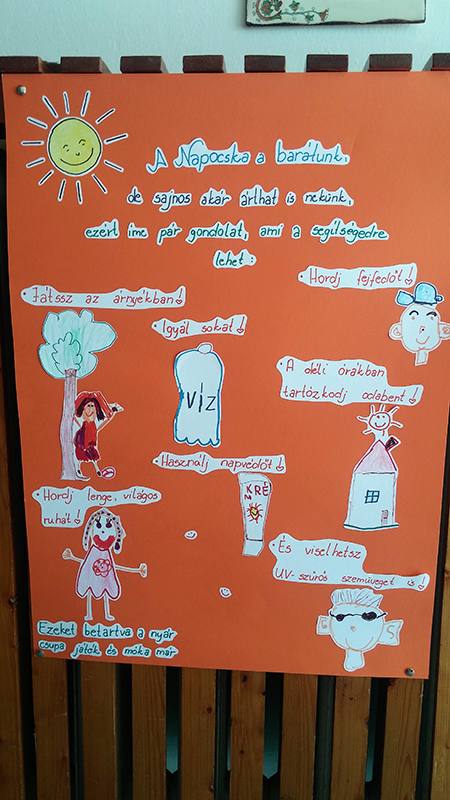 A Napocska a barátunk,
de sajnos akár árthat is nekünk,
ezért íme pár gondolat, ami a segítségedre
lehet:
Hordj fejfedőt!
Játssz az árnyékban!
Igyál sokat!
VÍZ
A déli órákban
tartózkodj odabent!
Használj napvédőt!
KRÉM
Hordj lenge, világos
ruhát!
És viselhetsz
UV-szűrős szemüveget is!
Ezeket betartva a nyár
csupa játék és móka már